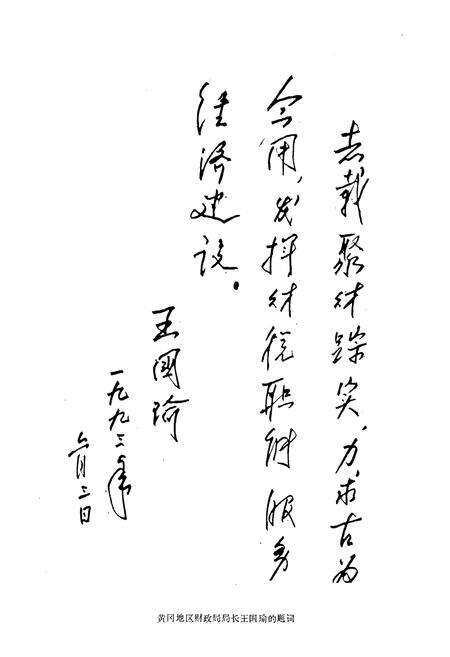 志载聚财踪实，力求古为
今用，发挥财税职能 服务
经济建设。
王国瑜
一九九三年
六月三日
黄冈地区财政局局长王国瑜的题词